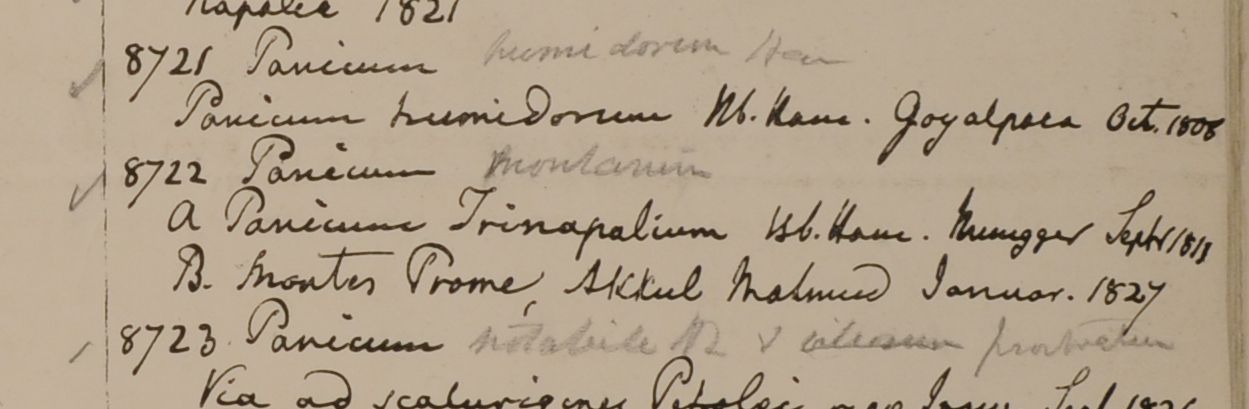 Napalia 1821
8721 Panicum humidorum Ham
Panicum humidorum Hb. Ham. Goyalpara Oct. 1808
8722 Panicum montanum
A Panicum Trinapalium Hb. Ham. Mungger Septr 1811
B. Montes Prome, Akkul Mahmud Januar. 1827
8723 Panicum notabile prostratum
Via ad scaturigines Petolei